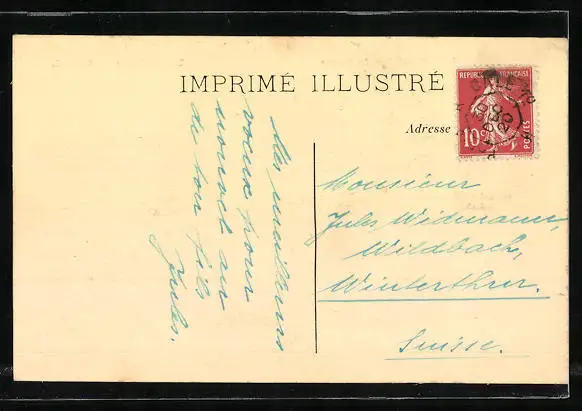 IMPRIMÉ ILLUSTRÉ
REPUBLIQUE FRANÇAISE
10c
POSTES
Adresse
Mes meilleurs
voeux pour
nouvel an
de ton fils
Jules.
Monsieur
Jules Widmann,
Wildbach,
Winterthur.
Suisse.